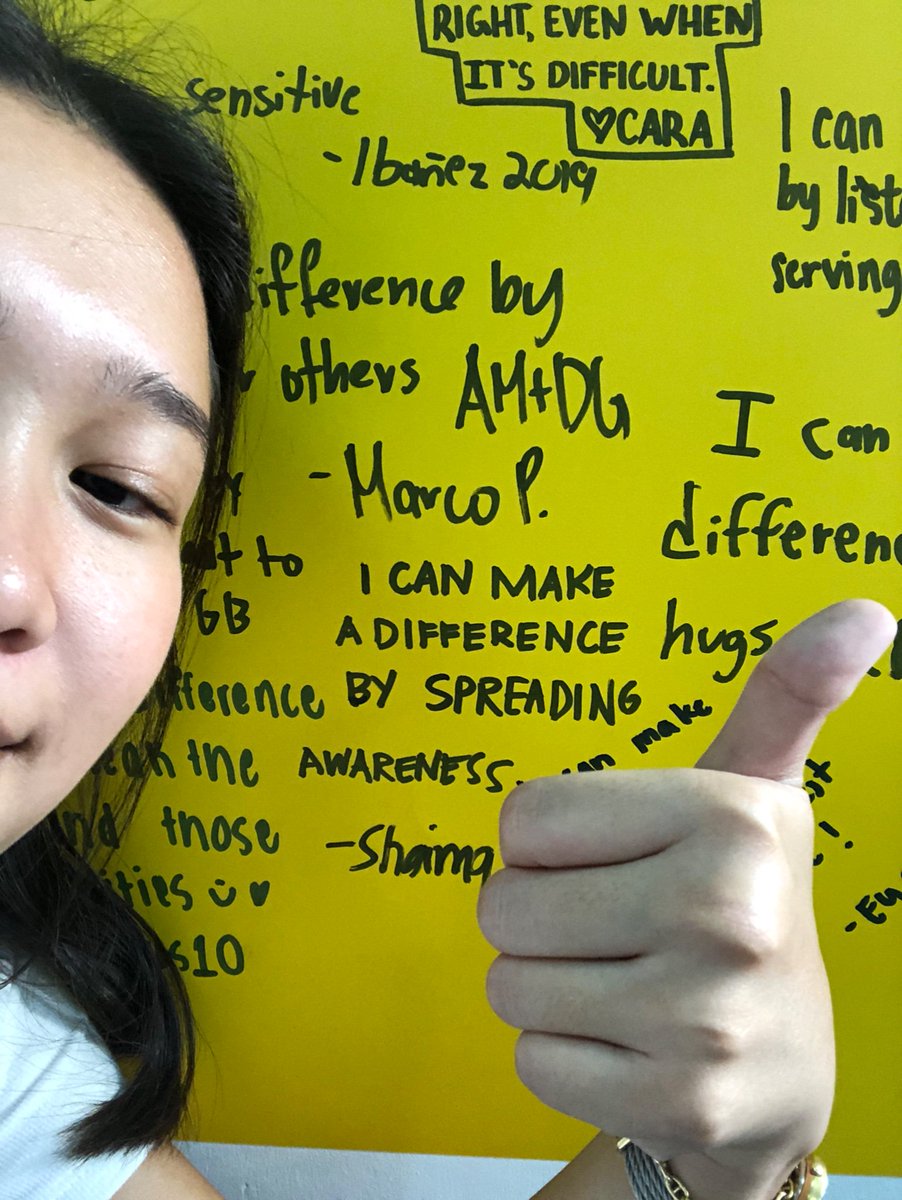 RIGHT, EVEN WHEN
IT'S DIFFICULT.
♡CARA
sensitive
-Ibañez 2019
ifference by
others AM+DG
-Marco P.
to
GB
fference
the
those
ities
s10
I CAN MAKE
A DIFFERENCE
BY SPREADING
AWARENESS.
-Shaima
I can
by list
serving
I can
differen
hugs
make